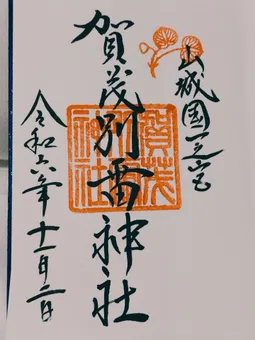 山城國一之宮
賀茂別雷神社
賀茂
神社
令和六年十一月二日